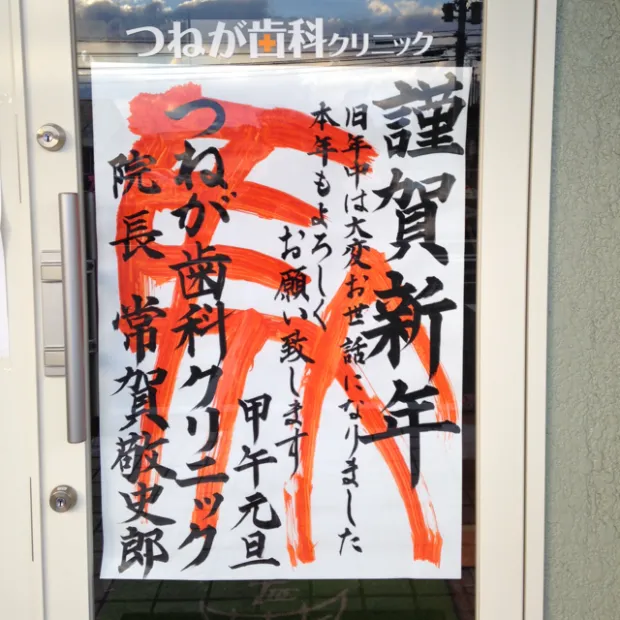 つねが歯科クリニック
謹賀新年
旧年中は大変お世話になりました
本年もよろしく
お願い致します
甲午元旦
つねが歯科クリニック
院長 常賀敬史郎